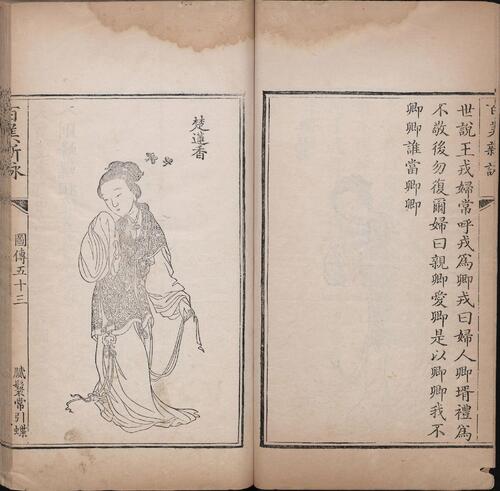 百美新詠
世說王戎婦常呼戎爲卿戎曰婦人卿壻禮爲
不敬後勿復爾婦曰親卿愛卿是以卿卿我不
卿卿誰當卿卿
楚蓮香
百美新詠
圖傳五十三
膩鬟常引蝶